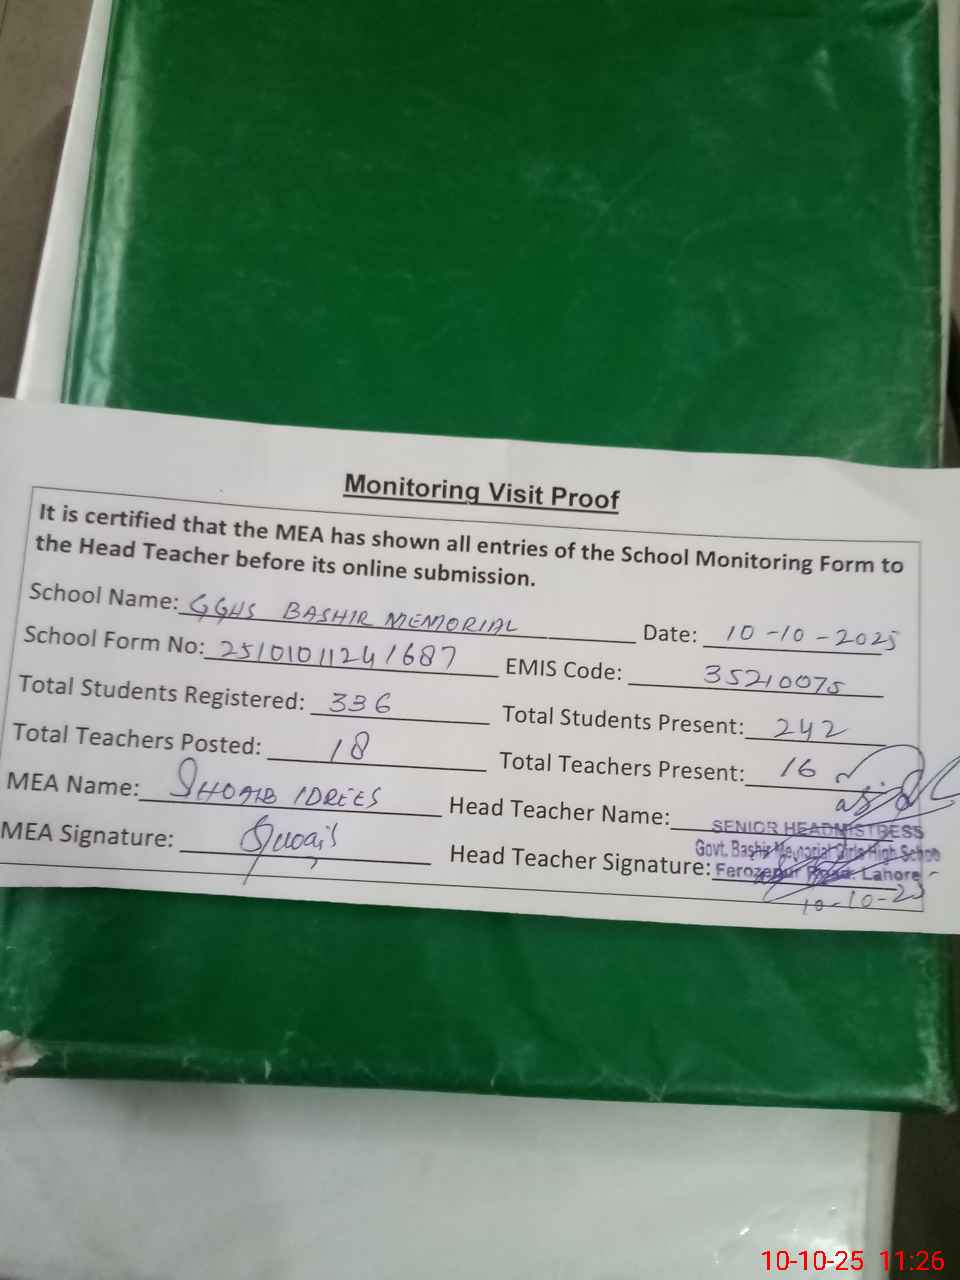 Monitoring Visit Proof
It is certified that the MEA has shown all entries of the School Monitoring Form to
the Head Teacher before its online submission.
School Name: GGHS BASHIR MEMORIAL Date: 10-10-2025
School Form No: 25101011241687 EMIS Code: 35210075
Total Students Registered: 336 Total Students Present: 242
Total Teachers Posted: 18 Total Teachers Present: 16
MEA Name: SHOAIB IDREES Head Teacher Name:
SENIOR HEADMISTRESS
MEA Signature: Shoaib Head Teacher Signature:
Govt. Bashir Memorial Girls High School
Ferozepur Road, Lahore
10-10-25
10-10-25 11:26